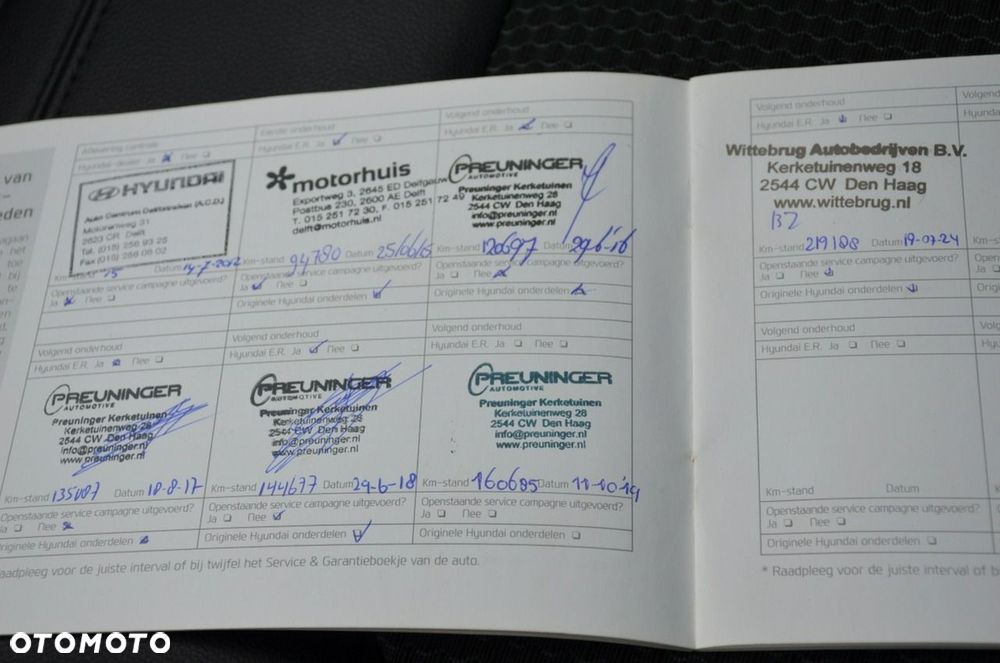 van
–
eden
Aflevering controle
Hyundai-dealer Ja Nee
HYUNDAI
Auto Centrum Delftstreken (A.C.D.)
Motorenweg 31
2623 CR Delft
Tel. (015) 256 93 25
Fax (015) 256 08 02
Km-stand 15 Datum 14-7-2012
Openstaande service campagne uitgevoerd?
Ja Nee
Eerste onderhoud
Hyundai E.R. Ja Nee
motorhuis
Exportweg 3, 2645 ED Delfgauw
Postbus 230, 2600 AE Delft
T. 015 251 72 30, F. 015 251 72 49
delft@motorhuis.nl
Km-stand 94780 Datum 25/06/15
Openstaande service campagne uitgevoerd?
Ja Nee
Originele Hyundai onderdelen
Volgend onderhoud
Hyundai E.R. Ja Nee
PREUNINGER
AUTOMOTIVE
Preuninger Kerketuinen
Kerketuinenweg 28
2544 CW Den Haag
info@preuninger.nl
www.preuninger.nl
Km-stand 120697 Datum 29-6-16
Openstaande service campagne uitgevoerd?
Ja Nee
Originele Hyundai onderdelen
Volgend onderhoud
Hyundai E.R. Ja Nee
PREUNINGER
AUTOMOTIVE
Preuninger Kerketuinen
Kerketuinenweg 28
2544 CW Den Haag
info@preuninger.nl
www.preuninger.nl
Km-stand 135087 Datum 18-8-17
Openstaande service campagne uitgevoerd?
Ja Nee
Originele Hyundai onderdelen
Volgend onderhoud
Hyundai E.R. Ja Nee
PREUNINGER
AUTOMOTIVE
Preuninger Kerketuinen
Kerketuinenweg 28
2544 CW Den Haag
info@preuninger.nl
www.preuninger.nl
Km-stand 144677 Datum 29-6-18
Openstaande service campagne uitgevoerd?
Ja Nee
Originele Hyundai onderdelen
Volgend onderhoud
Hyundai E.R. Ja Nee
PREUNINGER
AUTOMOTIVE
Preuninger Kerketuinen
Kerketuinenweg 28
2544 CW Den Haag
info@preuninger.nl
www.preuninger.nl
Km-stand 160685 Datum 11-10-19
Openstaande service campagne uitgevoerd?
Ja Nee
Originele Hyundai onderdelen
aadpleeg voor de juiste interval of bij twijfel het Service & Garantieboekje van de auto.
Volgend onderhoud
Hyundai E.R. Ja Nee
Wittebrug Autobedrijven B.V.
Kerketuinenweg 18
2544 CW Den Haag
www.wittebrug.nl
Km-stand 219188 Datum 19-07-24
Openstaande service campagne uitgevoerd?
Ja Nee
Originele Hyundai onderdelen
Volgend onderhoud
Hyundai E.R. Ja Nee
Km-stand Datum
Openstaande service campagne uitgevoerd?
Ja Nee
Originele Hyundai onderdelen
* Raadpleeg voor de juiste interval of b
Volgend
Hyundai E
Km-stan
Openst
Ja
Origin
Volge
Hyund
Km-s
Oper
Ja
Orig
OTOMOTO